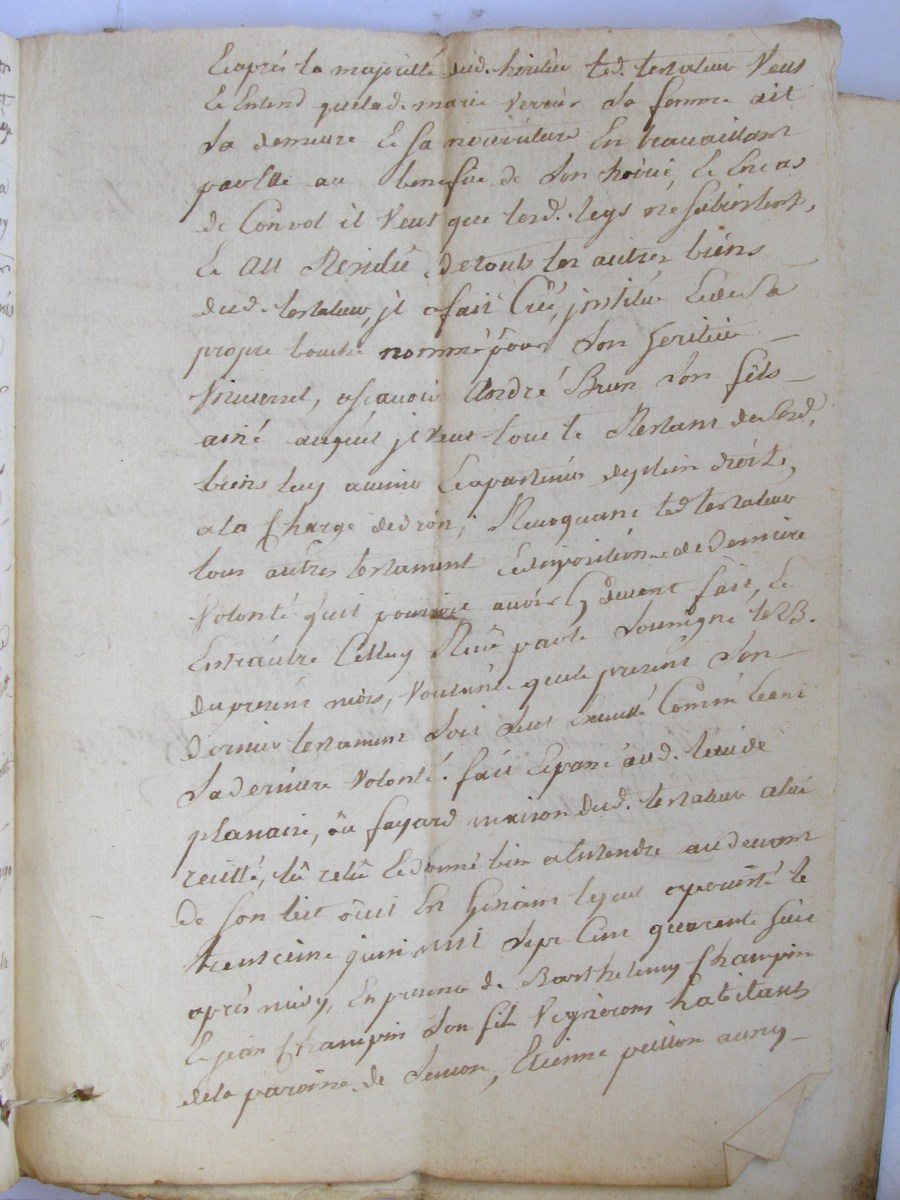 Et aprés la majorité dud. héritier led. testateur Veut
Et Entend que lad. marie verrier Sa femme ait
Sa demeure Et Sa nourriture En travaillant
par Elle au benefice de Son hoirie, Et En cas
de Convol il Veut que lesd. legs ne Subsistent,
Et Au Residû de touts les autres biens
dud. testateur, jl a fait Créé, jnstitué Et de Sa
propre bouche nommé pour Son heritier
Vniversel, ascavoir André Brun Son fils
ainé auquel jl Veut tout le Restant de Sesd.
biens luy avenir Et apartenir de plein droit,
a la Charge de dron, Revoquant led. testateur
tous autres testament Et dispositions de derniere
Volonté quil pourroit avoir Cy devant fait, Et
Entr'autre Celluy Reçû par le Soussigné le 23.
du present mois, Voulant que le present Son
dernier testament Soit Seul Executé Comme Etant
Sa derniere Volonté. fait Et passé aud. lieu de
planaise, ou fayard maison dud. testateur a luy
recitté, lû relû Et donné bien a Entendre au devant
de Son lit où il En Gisant le quel a
trente juin mil Sept Cent quarente huit
aprés midy, En presence de Barthelemy Champin
Et jean Champin Son fils Vignerons habitants
de la paroisse de , Etienne peillon aussy